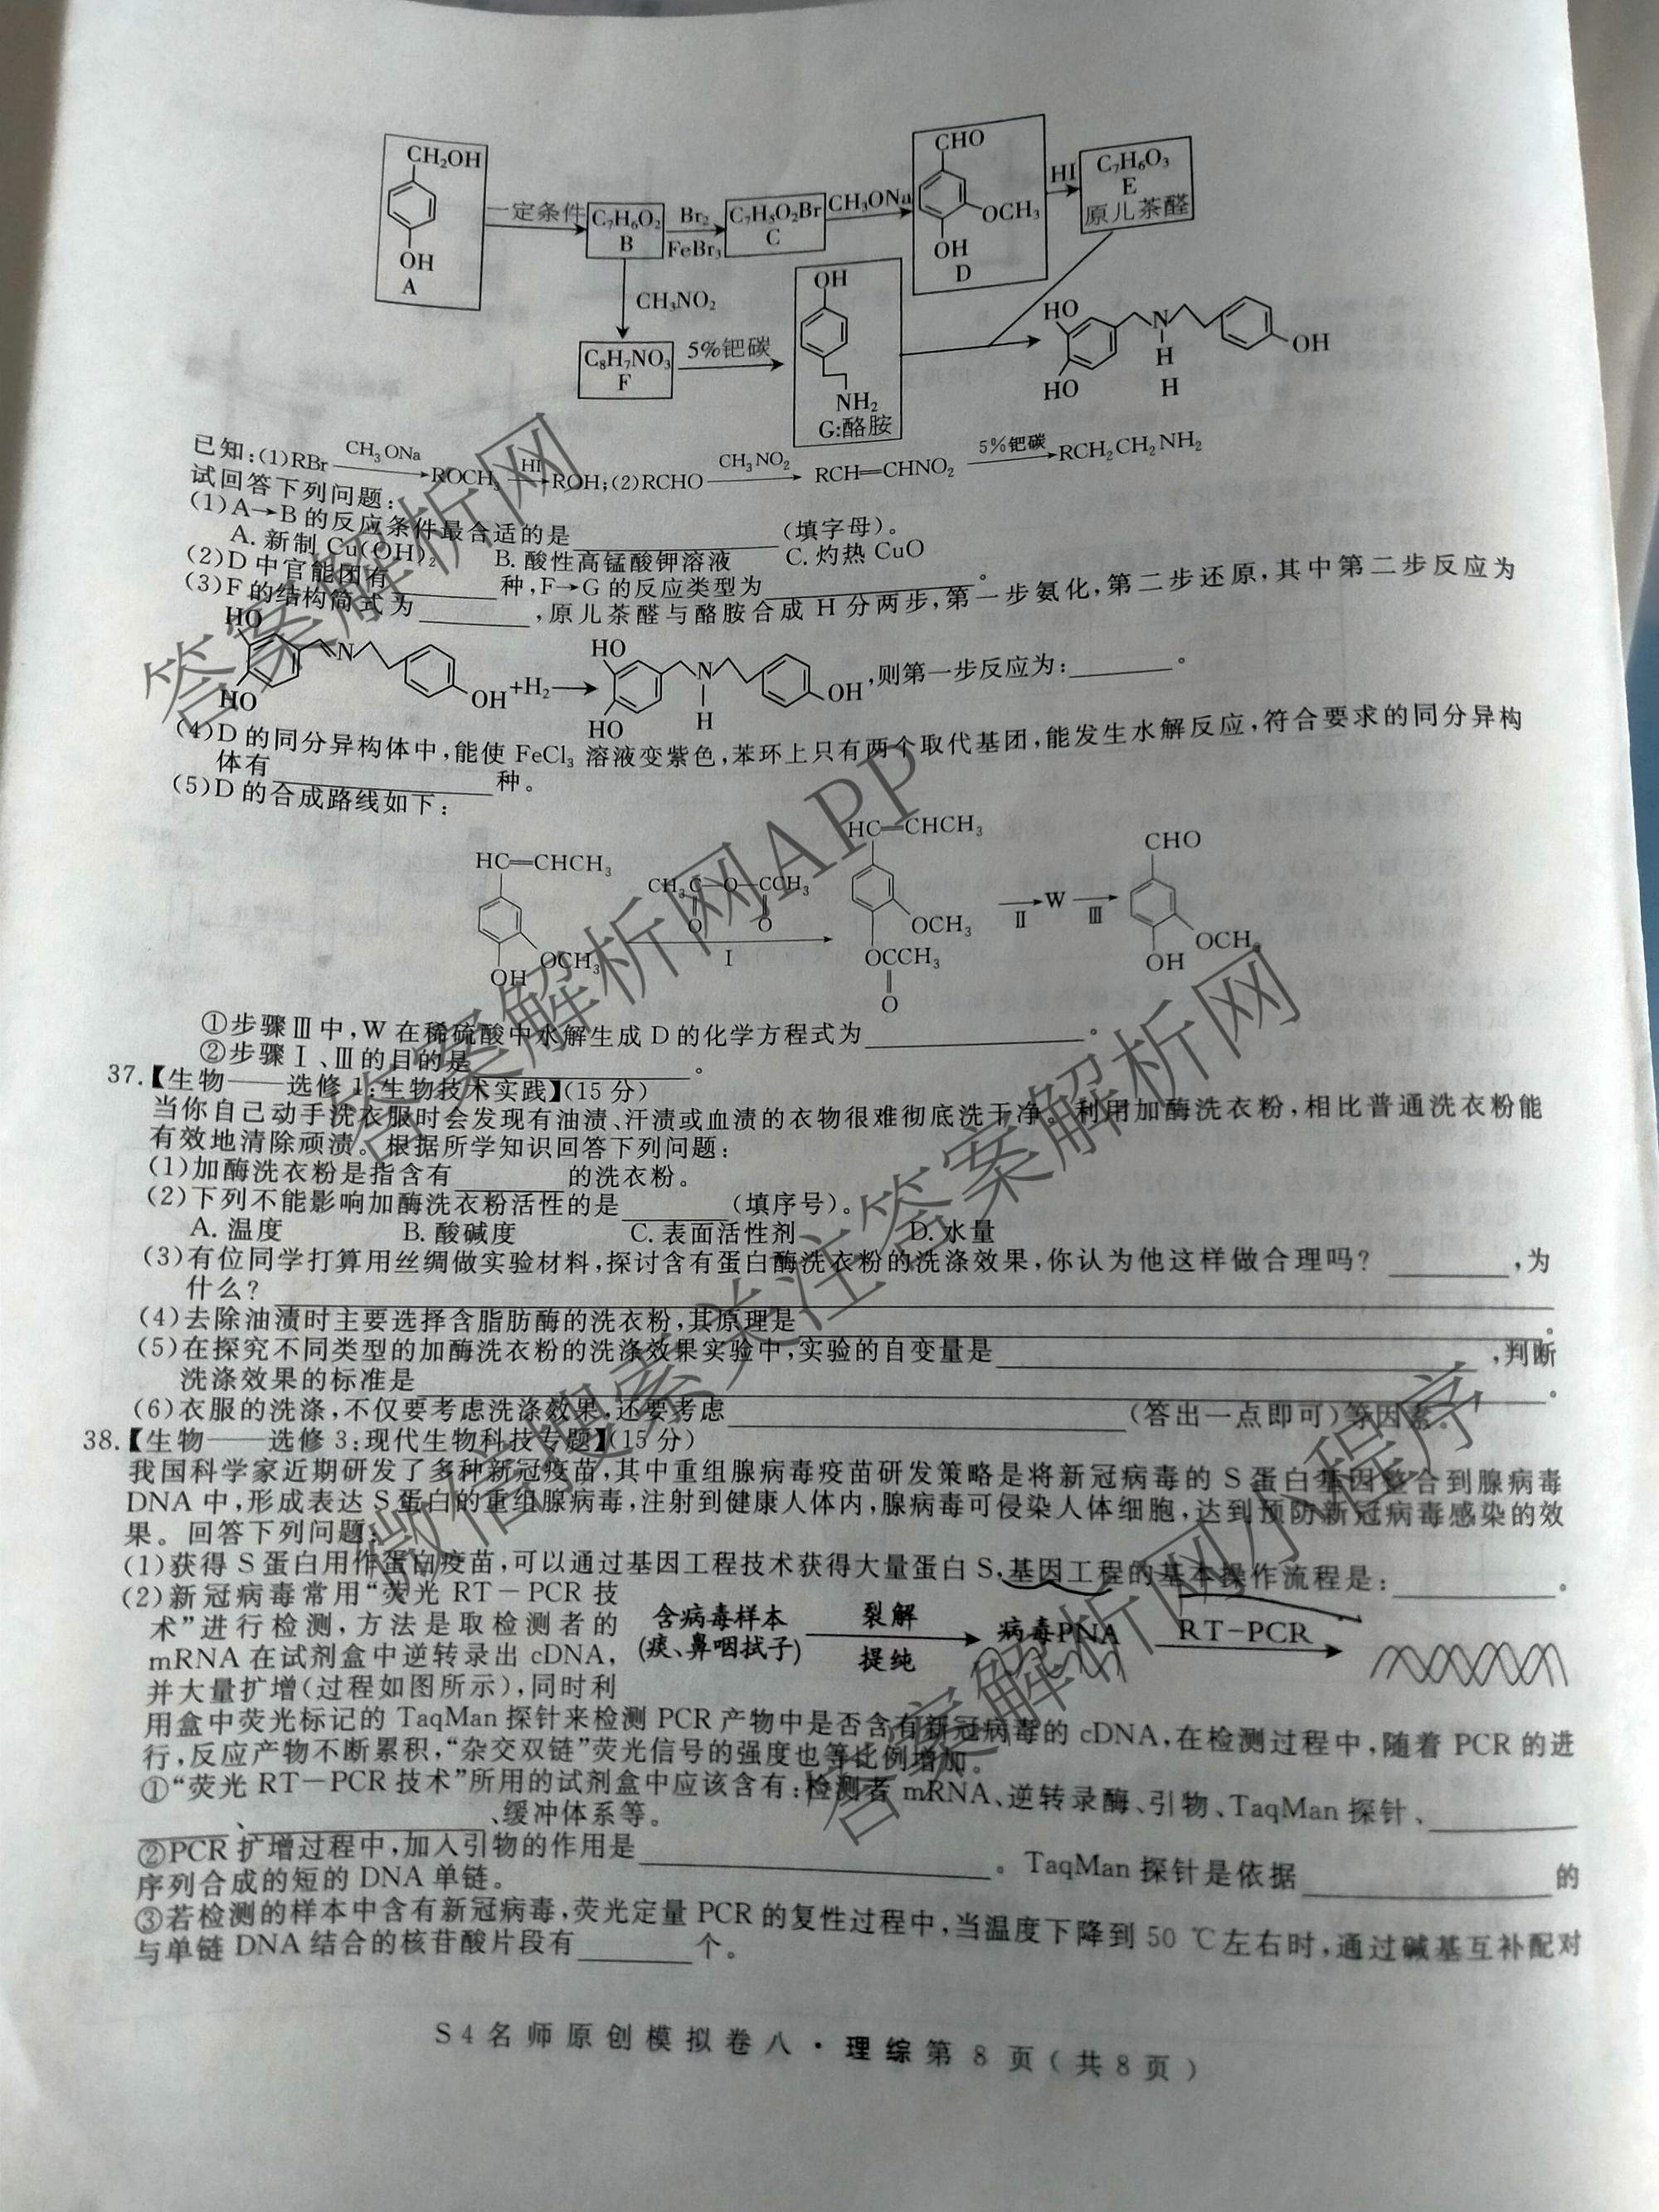 CH₂OH
OH
A
一定条件
C₇H₆O₂
B
Br₂
FeBr₃
C₇H₅O₂Br
C
CH₃ONa
CHO
OCH₃
OH
D
HI
C₇H₆O₃
E
原儿茶醛
CH₃NO₂
C₈H₇NO₃
F
5%钯碳
OH
NH₂
G:酪胺
HO
HO
N
H
OH
H
已知:(1)RBr CH₃ONa→ROCH₃ HI→ROH;(2)RCHO CH₃NO₂→RCH=CHNO₂ 5%钯碳→RCH₂CH₂NH₂
试回答下列问题:
(1)A→B的反应条件最合适的是____(填字母)。
A. 新制Cu(OH)₂ B. 酸性高锰酸钾溶液 C. 灼热CuO
(2)D中官能团有____种,F→G的反应类型为____。
(3)F的结构简式为____,原儿茶醛与酪胺合成H分两步,第一步氨化,第二步还原,其中第二步反应为
HO HO N OH+H₂→ HO HO N H OH,则第一步反应为:____。
(4)D的同分异构体中,能使FeCl₃溶液变紫色,苯环上只有两个取代基团,能发生水解反应,符合要求的同分异构
体有____种。
(5)D的合成路线如下:
HC=CHCH₃
OCH₃
OH
CH₃C—O—CCH₃
O O
Ⅰ
HC=CHCH₃
OCH₃
OCCH₃
O
Ⅱ
W
Ⅲ
CHO
OCH₃
OH
①步骤Ⅲ中,W在稀硫酸中水解生成D的化学方程式为____。
②步骤Ⅰ、Ⅲ的目的是____。
37.【生物——选修1:生物技术实践】(15分)
当你自己动手洗衣服时会发现有油渍、汗渍或血渍的衣物很难彻底洗干净。利用加酶洗衣粉,相比普通洗衣粉能
有效地清除顽渍。根据所学知识回答下列问题:
(1)加酶洗衣粉是指含有____的洗衣粉。
(2)下列不能影响加酶洗衣粉活性的是____(填序号)。
A. 温度 B. 酸碱度 C. 表面活性剂 D. 水量
(3)有位同学打算用丝绸做实验材料,探讨含有蛋白酶洗衣粉的洗涤效果,你认为他这样做合理吗?____,为
什么?____
(4)去除油渍时主要选择含脂肪酶的洗衣粉,其原理是____。
(5)在探究不同类型的加酶洗衣粉的洗涤效果实验中,实验的自变量是____,判断
洗涤效果的标准是____。
(6)衣服的洗涤,不仅要考虑洗涤效果,还要考虑____(答出一点即可)等因素。
38.【生物——选修3:现代生物科技专题】(15分)
我国科学家近期研发了多种新冠疫苗,其中重组腺病毒疫苗研发策略是将新冠病毒的S蛋白基因整合到腺病毒
DNA中,形成表达S蛋白的重组腺病毒,注射到健康人体内,腺病毒可侵染人体细胞,达到预防新冠病毒感染的效
果。回答下列问题:
(1)获得S蛋白用作蛋白疫苗,可以通过基因工程技术获得大量蛋白S,基因工程的基本操作流程是:____。
(2)新冠病毒常用“荧光RT-PCR技
术”进行检测,方法是取检测者的
mRNA在试剂盒中逆转录出cDNA,
并大量扩增(过程如图所示),同时利
含病毒样本
(痰、鼻咽拭子)
裂解
提纯
病毒PNA
RT-PCR
用盒中荧光标记的TaqMan探针来检测PCR产物中是否含有新冠病毒的cDNA,在检测过程中,随着PCR的进
行,反应产物不断累积,“杂交双链”荧光信号的强度也等比例增加。
①“荧光RT-PCR技术”所用的试剂盒中应该含有:检测者mRNA、逆转录酶、引物、TaqMan探针、____
____、____、缓冲体系等。
②PCR扩增过程中,加入引物的作用是____。TaqMan探针是依据____的
序列合成的短的DNA单链。
③若检测的样本中含有新冠病毒,荧光定量PCR的复性过程中,当温度下降到50℃左右时,通过碱基互补配对
与单链DNA结合的核苷酸片段有____个。
S4名师原创模拟卷八·理综第8页(共8页)
答案解析网
答案解析网APP
微信搜索关注答案解析网
答案解析网小程序